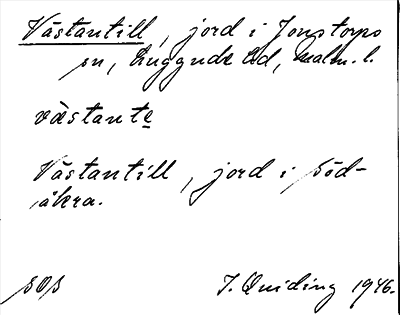 Västantill, jord i Jonstorps
sn, Luggude hd, Malm. l.
västante
Västantill, jord i Söd-
åkra.
SOS
J. Quiding 1946.